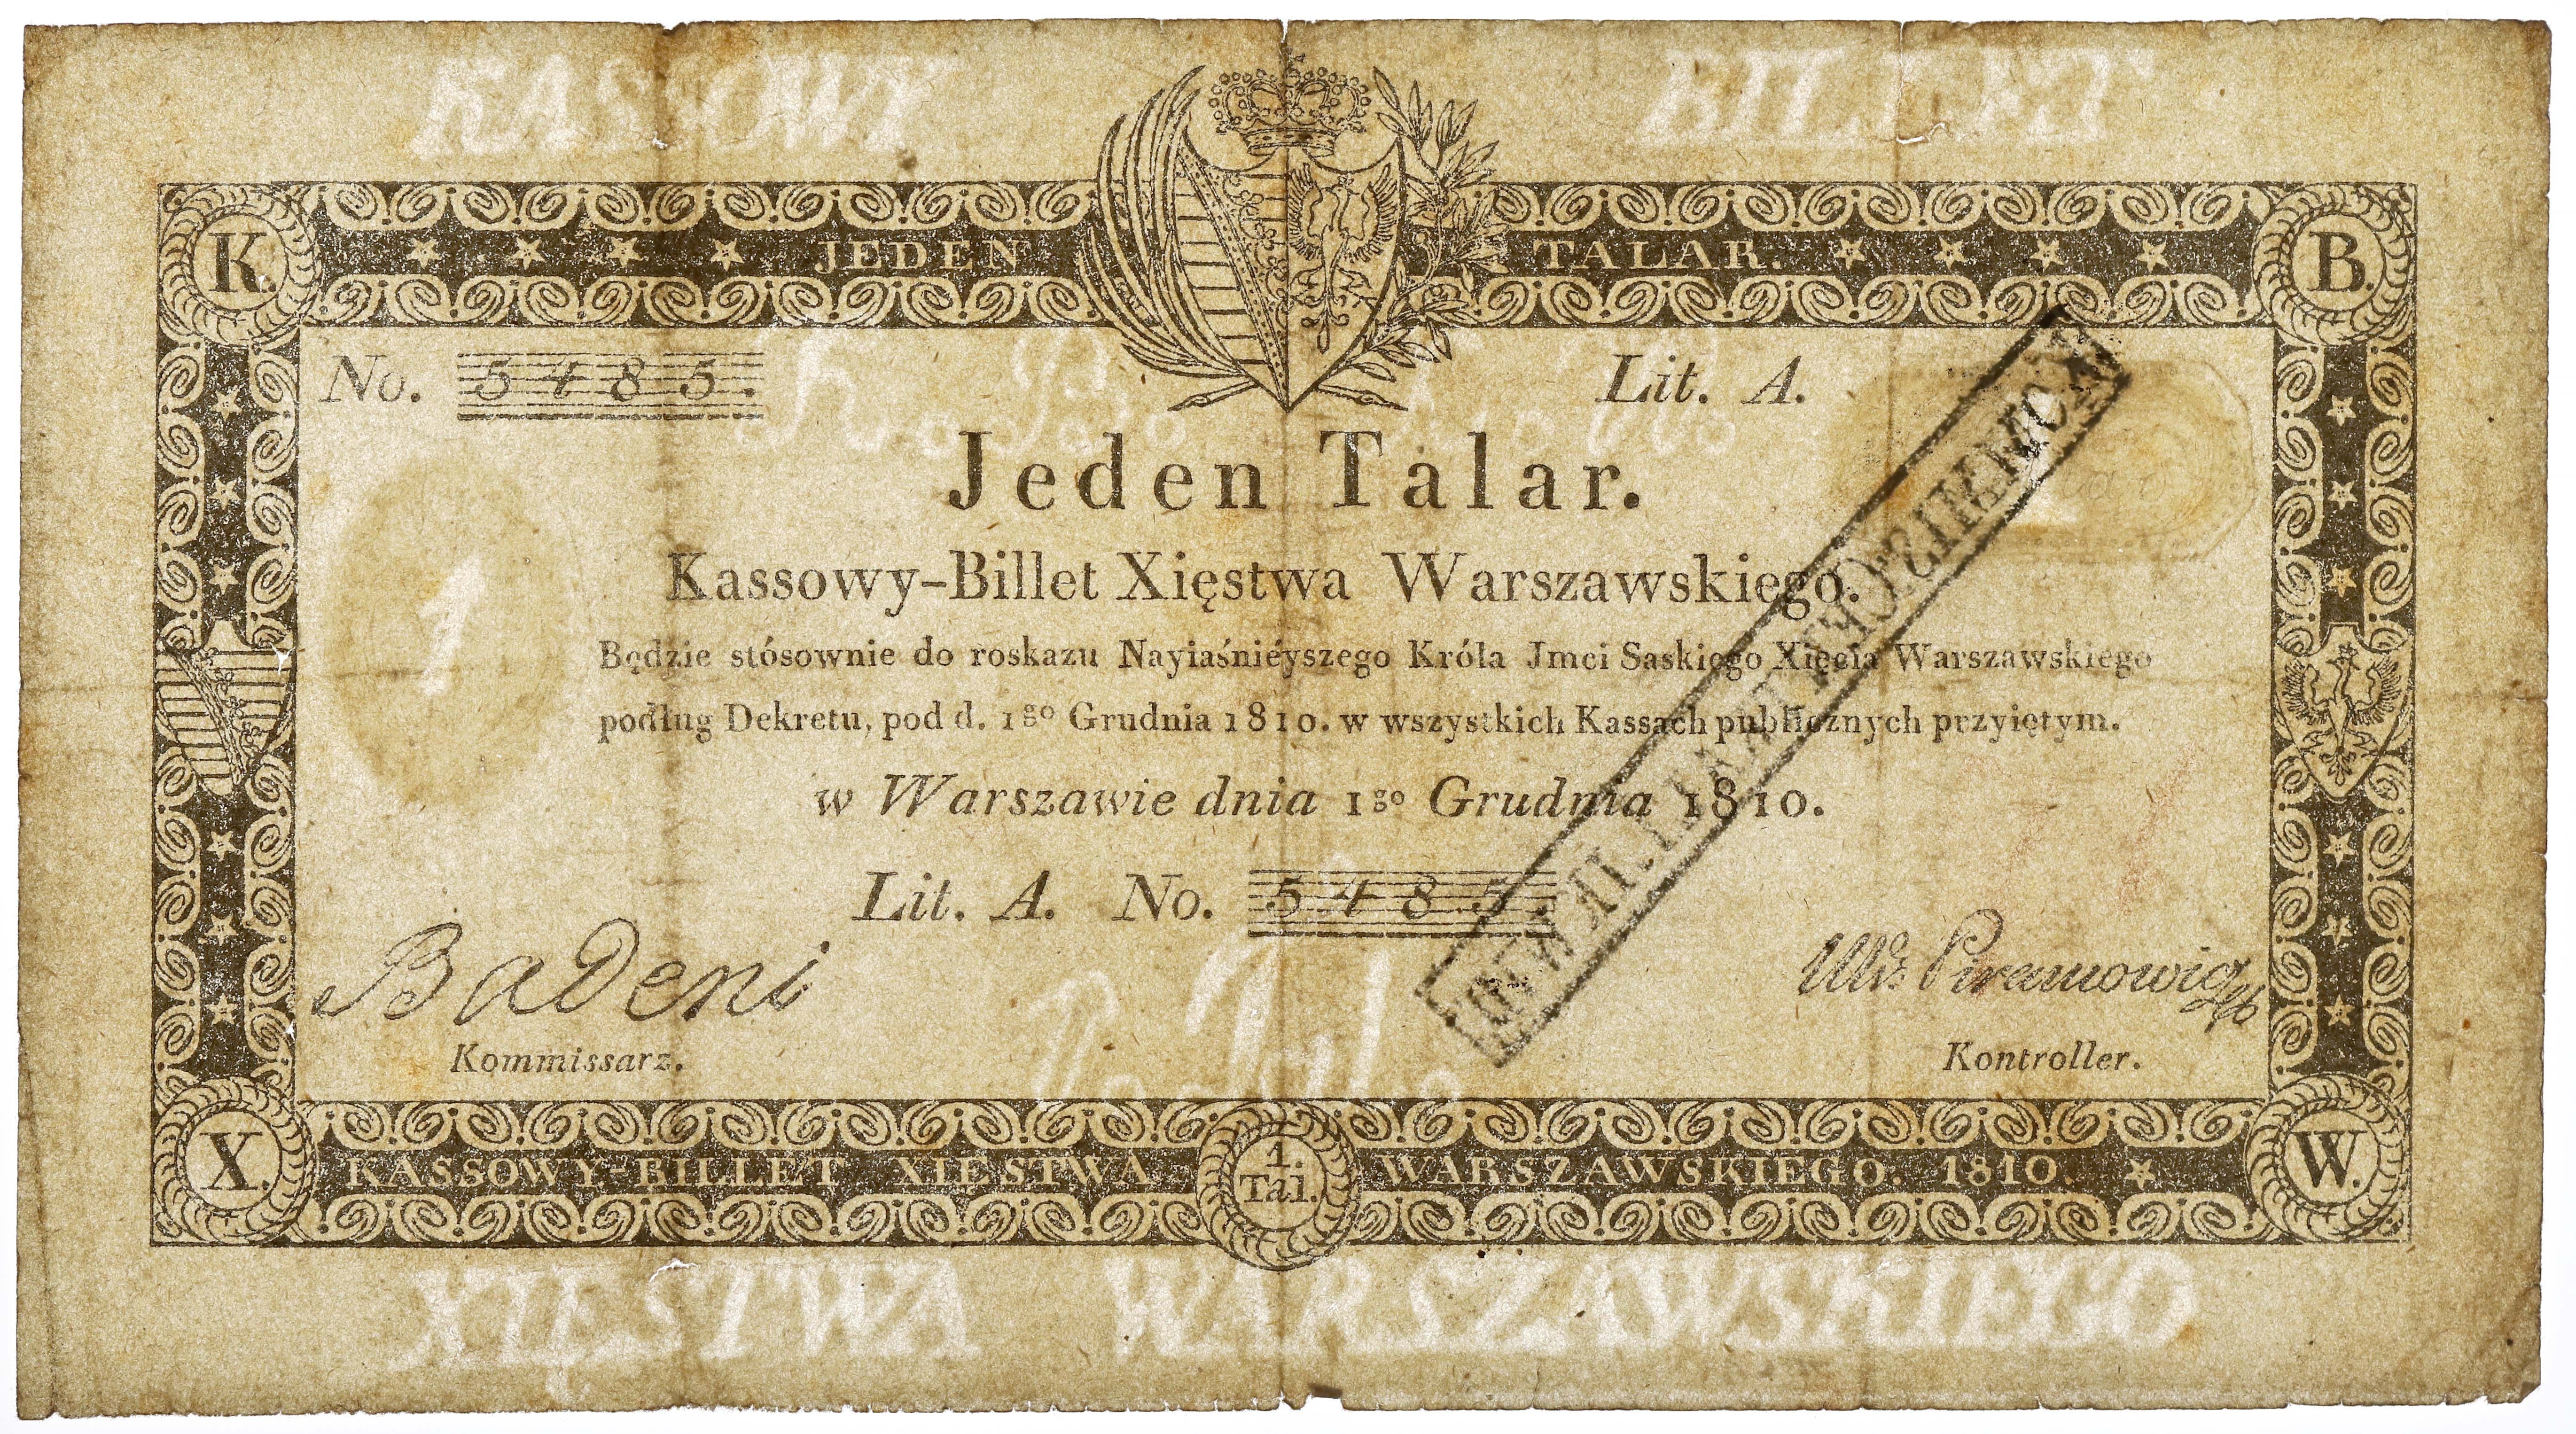 KASSOWY BILLET
K. JEDEN TALAR. B.
No. 5485. Lit. A.
Jeden Talar.
Kassowy-Billet Xięstwa Warszawskiego.
Będzie stósownie do roskazu Nayiaśniéyszego Króla Jmci Saskiego Xięcia Warszawskiego
podług Dekretu, pod d. 1go Grudnia 1810. w wszystkich Kassach publicznych przyiętym.
1
w Warszawie dnia 1go Grudnia 1810.
Lit. A. No. 5485.
Badeni
Kommissarz. Kontroller.
X. KASSOWY-BILLET XIĘSTWA 1. Tal. WARSZAWSKIEGO. 1810. W.
XIĘSTWA WARSZAWSKIEGO